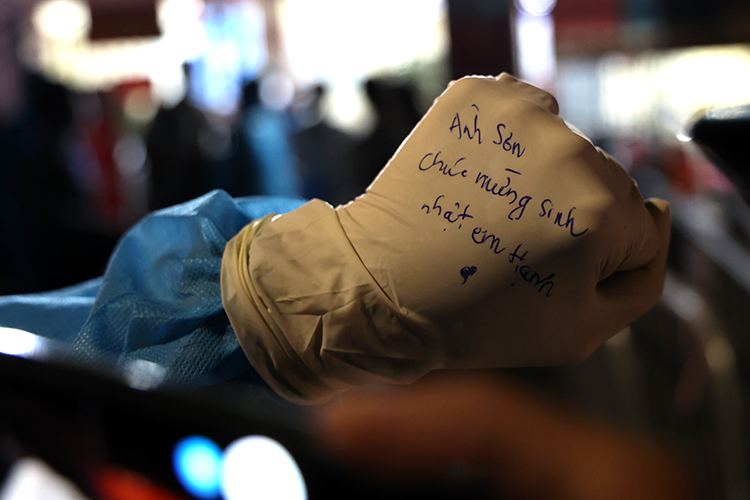 Anh Sơn
chúc mừng sinh
nhật em Hạnh